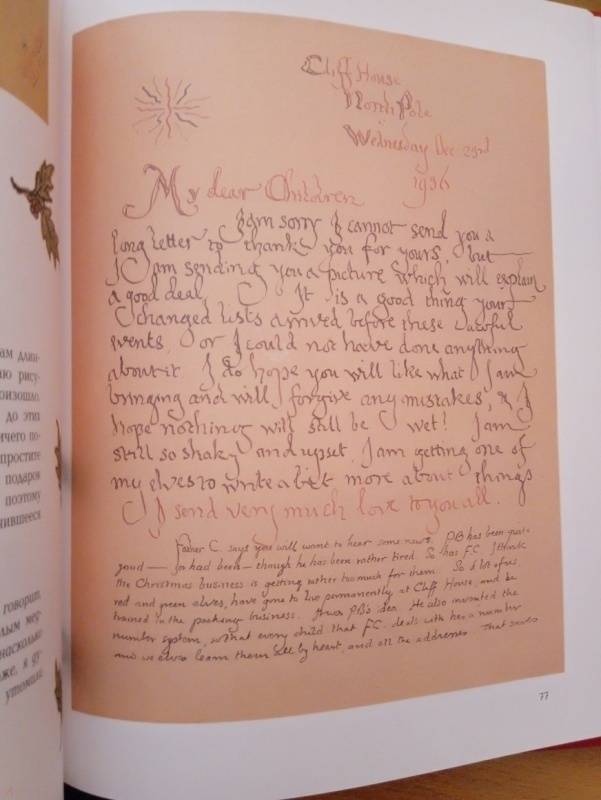 Cliff House
North Pole
Wednesday Dec 23rd
1936
My dear Children
I am sorry I cannot send you a
long letter to thank you for yours, but
I am sending you a picture which will explain
a good deal. It is a good thing your
changed lists arrived before these awful
events, or I could not have done anything
about it. I do hope you will like what I am
bringing and will forgive any mistakes, & I
hope nothing will still be wet! I am
still so shaky and upset, I am getting one of
my elves to write a bit more about things
I send very much love to you all.
Father C. says you will want to hear some news. PB has been quite
good — or had been — though he has been rather tired. So has F.C. I think
the Christmas business is getting rather too much for them. So a lot of us,
red and green elves, have gone to live permanently at Cliff House, and be
trained in the packing business. It was PB's idea. He also invented the
number system, so that every child that F.C. deals with has a number
and we elves learn them all by heart, and all the addresses. That saves
77
ам длин-
аю рису-
оизошло.
до этих
ичего по-
простите
подаров
поэтому
чившееся
говорит,
лым мер-
насколько
же, я ду-
утомили